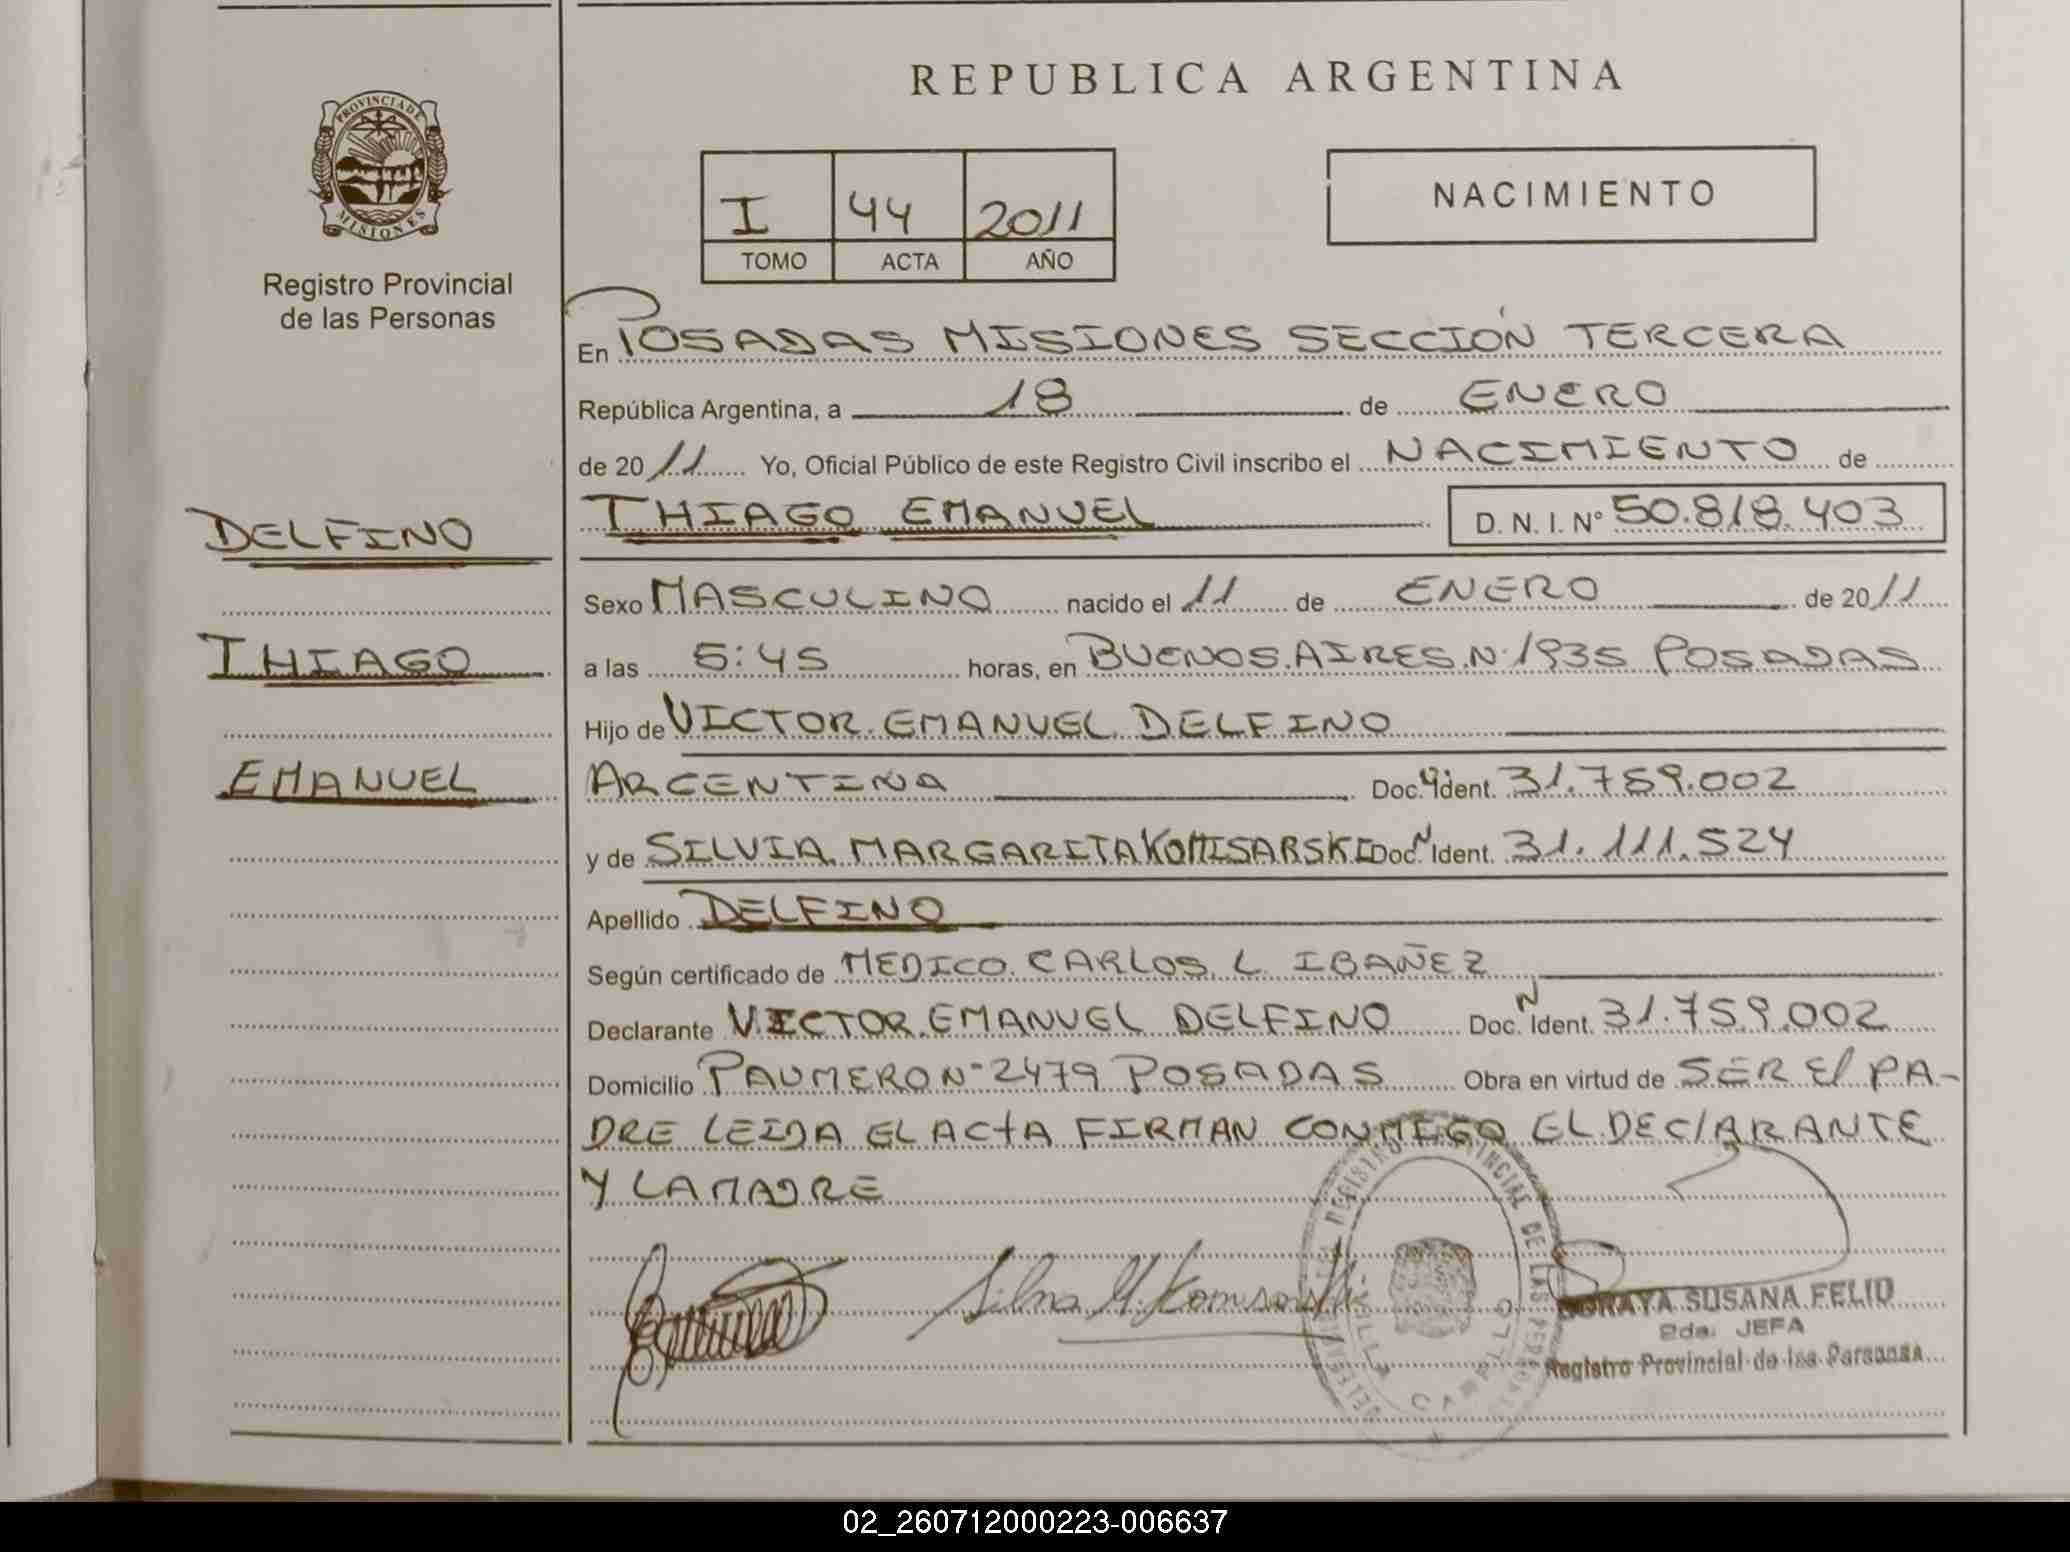 REPUBLICA ARGENTINA
PROVINCIA DE
MISIONES
Registro Provincial
de las Personas
I 44 2011
TOMO ACTA AÑO
NACIMIENTO
En POSADAS MISIONES SECCIÓN TERCERA
República Argentina, a 18 de ENERO
de 2011 Yo, Oficial Público de este Registro Civil inscribo el NACIMIENTO de
DELFINO
THIAGO EMANUEL D. N. I. N° 50.818.403
Sexo MASCULINO nacido el 11 de ENERO de 2011
THIAGO
a las 5:45 horas, en BUENOS AIRES N° 1935 POSADAS
Hijo de VICTOR EMANUEL DELFINO
EMANUEL
ARGENTINA Doc. N Ident. 31.759.002
y de SILVIA MARGARITA KOMISARSKI Doc. N Ident. 31.111.524
Apellido DELFINO
Según certificado de MEDICO CARLOS L IBAÑEZ
Declarante VICTOR EMANUEL DELFINO Doc. N Ident. 31.759.002
Domicilio PAUMERO N° 2479 POSADAS Obra en virtud de SER El PA-
DRE LEIDA EL ACtA FIRMAN CONMIGO EL DEClARANTE
Y LA MADRE
SORAYA SUSANA FELIO
2da. JEFA
Registro Provincial de las Personas
02_260712000223-006637